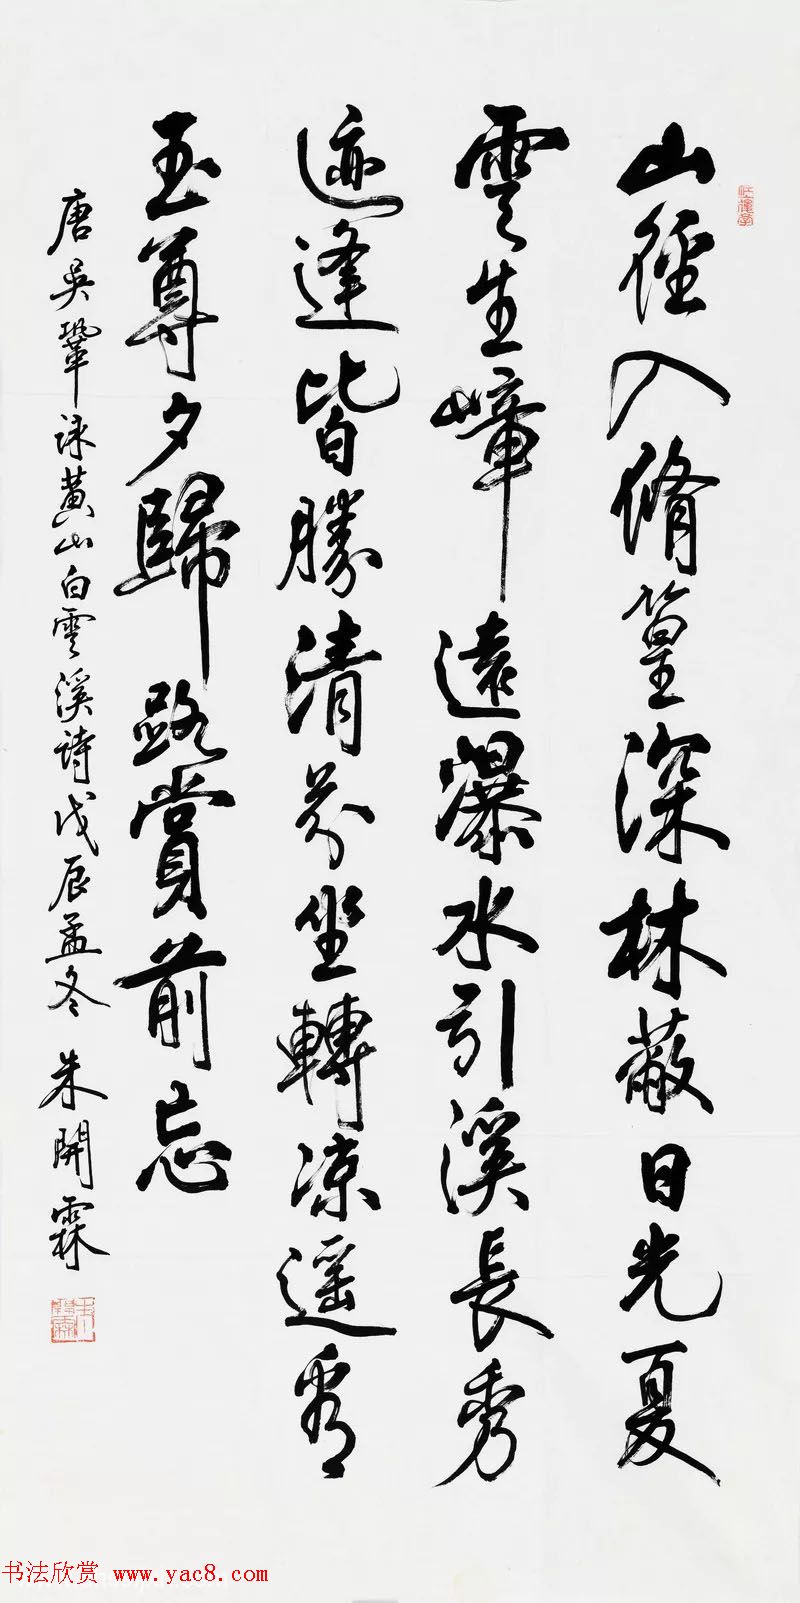 山徑入脩篁深林蔽日光夏
雲生嶂遠瀑水引溪長秀
迹逢皆勝清芬坐轉凉遥看
玉尊夕歸路賞前忘
唐吳鞏詠黃山白雲溪詩戊辰孟冬 朱開霖
书法欣赏 www.yac8.com